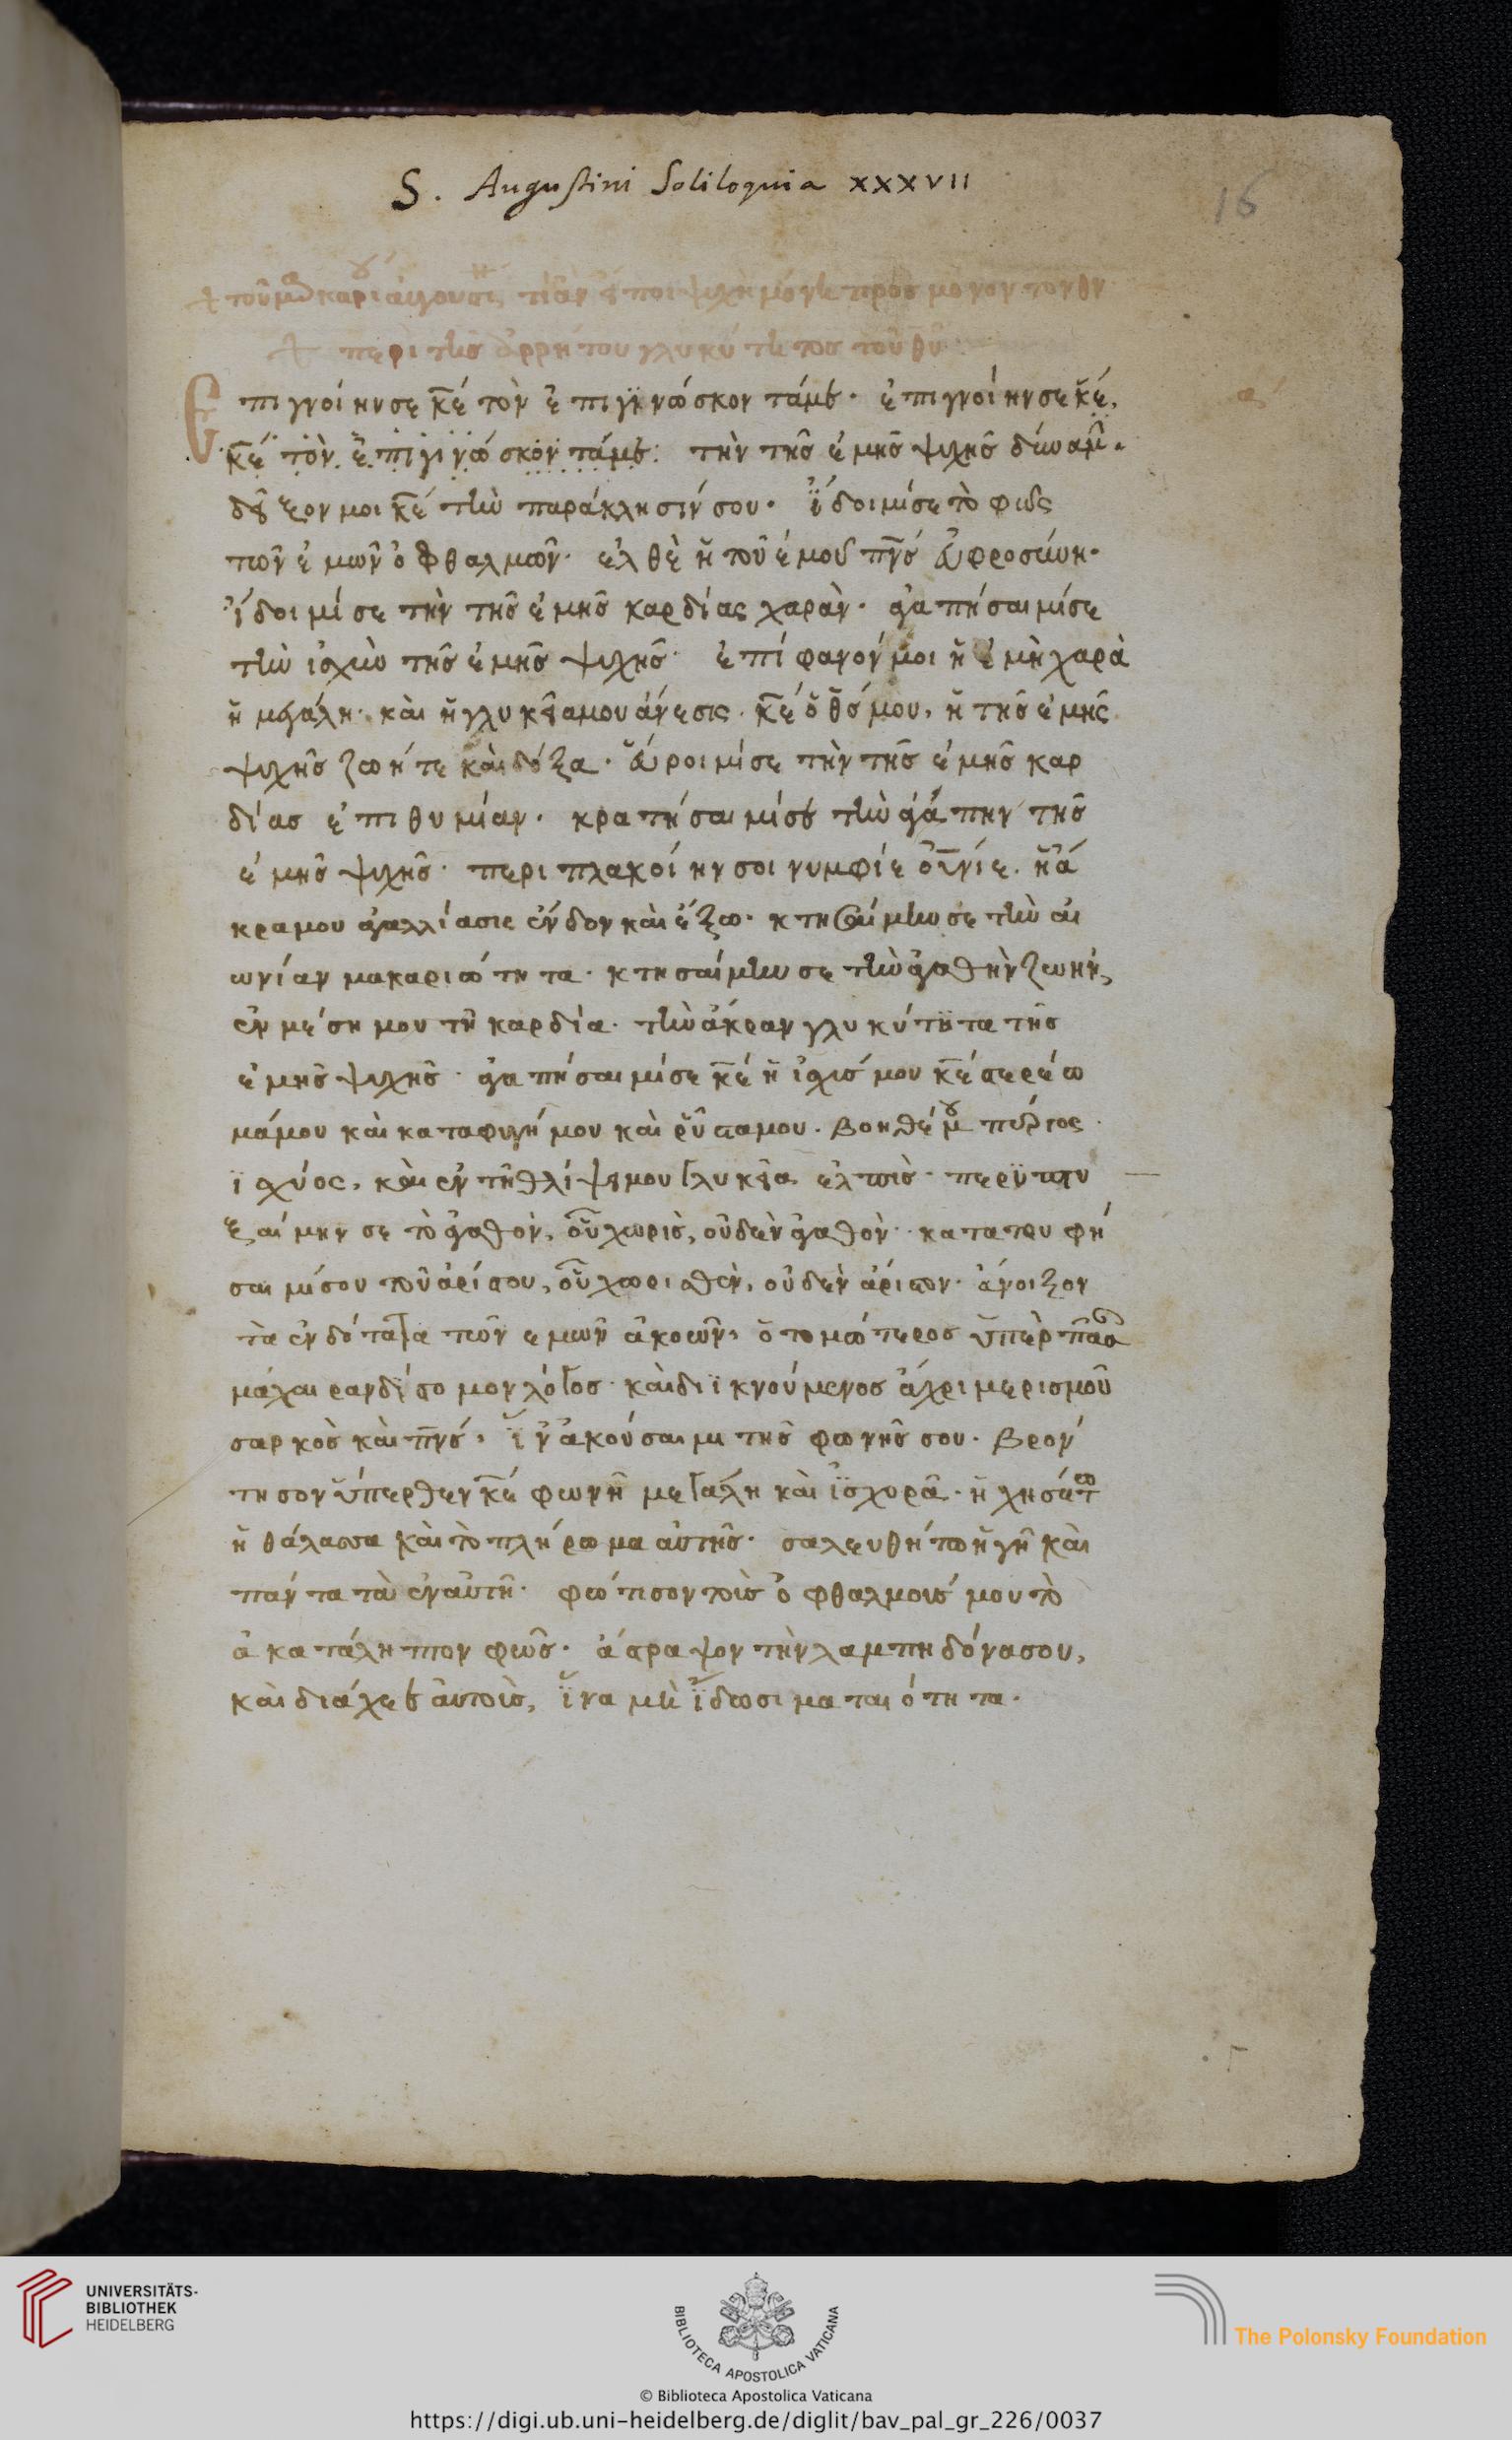 S. Augustini Soliloquia XXXVII
16
περὶ τῆς ἀρρήτου γλυκύτητος τοῦ θυ
Επιγνοίην σε κ̅ε̅ τὸν ἐπιγινώσκοντά με· ἐπιγνοίην σε κ̅ε̅,
κ̅ε̅ τὸν ἐπιγινώσκοντά με· τὴν τῆς ἐμῆς ψυχῆς δύναμι̅·
δεῖξον μοι κ̅ε̅ τὴν παράκλησίν σου· ἴ̈δοιμί σε τὸ φῶς
τῶν ἐμῶν ὀφθαλμῶν· ἐλθὲ ἡ τοῦ ἐμοῦ π̅ν̅ς̅ εὐφροσύνη·
ἴδοιμί σε τὴν τῆς ἐμῆς καρδίας χαρὰν· ἀγαπήσαιμί σε
τὴν ἰσχὺν τῆς ἐμῆς ψυχῆς· ἐπίφανόν μοι ἡ ἐμὴ χαρὰ
ἡ μεγάλη· καὶ ἡ γλυκεῖα μου ἄνεσις· κ̅ε̅ ὁ θ̅ς̅ μου, ἡ τῆς ἐμῆς
ψυχῆς ζωή τε καὶ δόξα· εὕροιμί σε τὴν τῆς ἐμῆς καρ
δίας ἐπιθυμίαν· κρατήσαιμί σε τὴν ἀγάπην τῆς
ἐμῆς ψυχῆς· περιπλακοίην σοι νυμφίε οὐ̅ν̅ιε· ἡ ἄ
κρα μου ἀγαλλίασις ἔνδον καὶ ἔξω· κτησαίμην σε τὴν αἰ
ωνίαν μακαριότητα· κτησαίμην σε τὴν ἀγαθὴν ζωὴν,
ἐν μέσῃ μου τῇ καρδία· τὴν ἄκραν γλυκύτητα τῆς
ἐμῆς ψυχῆς· ἀγαπήσαιμί σε κ̅ε̅ ἡ ἰσχίς μου κ̅ε̅ στερέω
μά μου καὶ καταφυγή μου καὶ ῥύστα μου· βοηθέ μου πύργος
ἰ̈σχύος, καὶ ἐν τῇ θλίψει μου γλυκεῖα ἐλπὶς· περιπτυ
ξαίμην σε τὸ ἀγαθὸν, οὗ χωρὶς, οὐδὲν ἀγαθὸν· κατατρυφή
σαιμί σου τοῦ ἀρίστου, οὗ χωρισθὲν, οὐδὲν ἄριστον· ἄνοιξον
τὰ ἐνδότατα τῶν ἐμῶν ἀκοῶν, ὁ τομώτερος ὑπὲρ πᾶσα
μάχαιραν δίστομον λόγος· καὶ διϊκνούμενος ἄχρι μερισμοῦ
σαρκὸς καὶ π̅ν̅ς̅, ἵ̈ν ἀκούσαιμι τῆς φωνῆς σου· βρόν
τησον ὕπερθεν κ̅ε̅ φωνῇ μεγάλη καὶ ἰ̈σχυρᾶ· ἠχησάτω
ἡ θάλασσα καὶ τὸ πλήρωμα αὐτῆς· σαλευθήτω ἡ γῆ καὶ
πάντα τὰ ἐν αὐτῇ· φώτισον τοὶς ὀφθαλμοις μου τὸ
ἀκατάληπτον φῶς· ἄστραψον τὴν λαμπηδόνα σου,
καὶ διάχεε αὐτοὶς, ἵ̈να μὴ ἴ̈δωσι ματαιότητα·
UNIVERSITÄTS-
BIBLIOTHEK
HEIDELBERG
BIBLIOTECA APOSTOLICA VATICANA
The Polonsky Foundation
© Biblioteca Apostolica Vaticana
https://digi.ub.uni-heidelberg.de/diglit/bav_pal_gr_226/0037